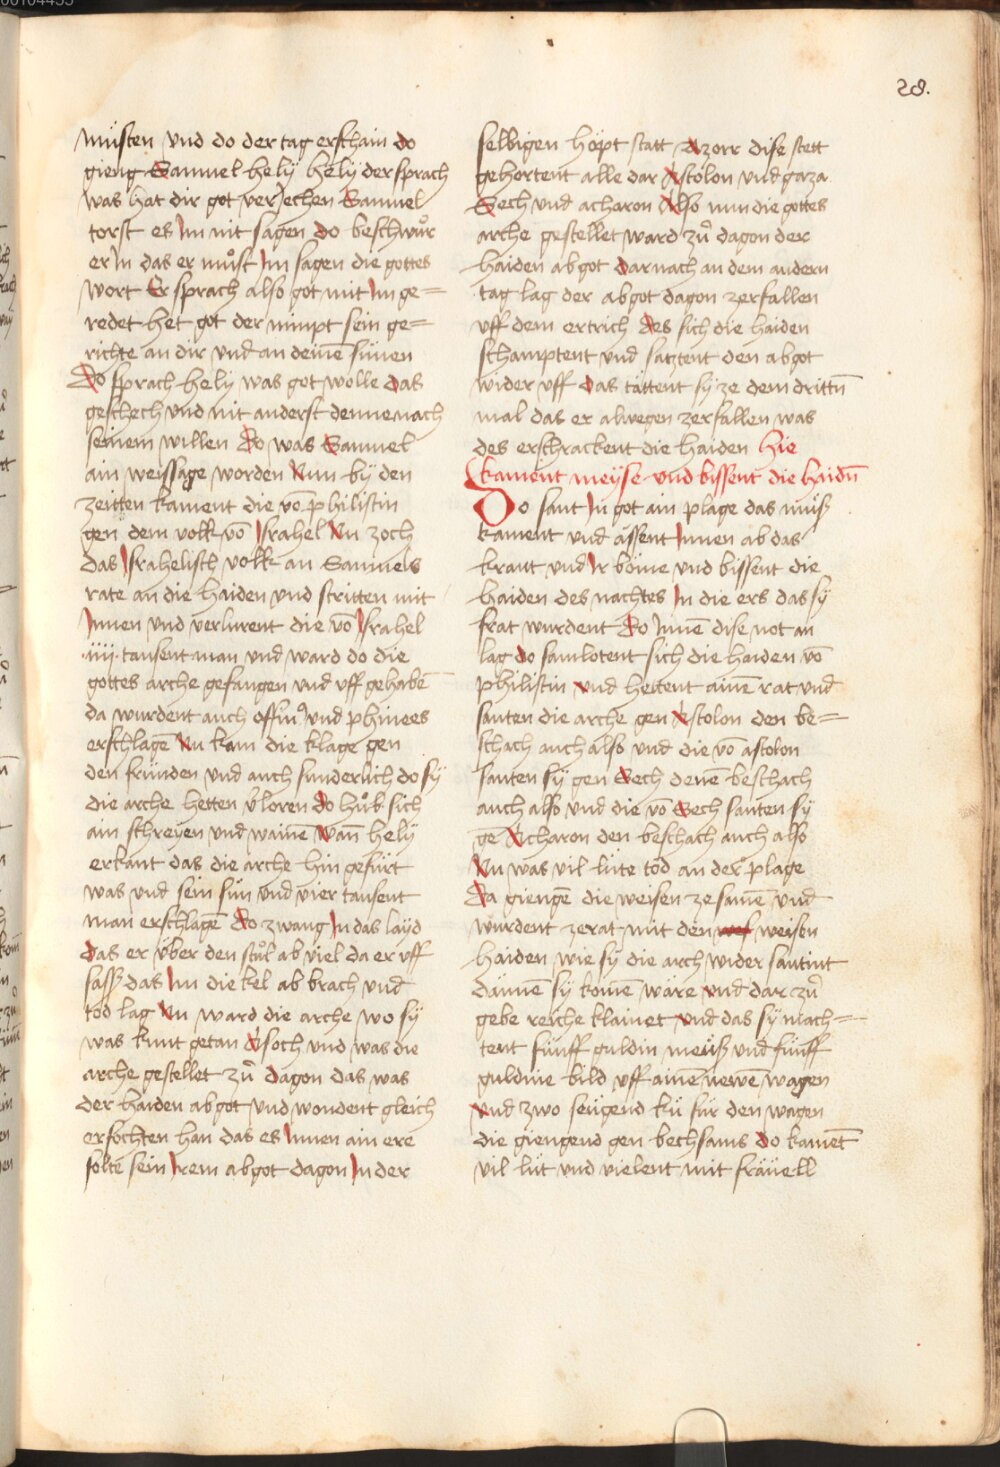 28.
müsten vnd do der tag erschain do
gieng Samuel hely hely der sprach
was hat dir got veriechen Samuel
torst es Im nit sagen do beschwůr
er In das er můst Im sagen die gottes
wort Er sprach also got mit Im ge=
redet het got der nimpt sein ge=
richte an dir vnd an deinē sünen
Do sprach hely was got wolle das
geschech vnd nit anderst denne nach
seinem willen Do was Samuel
ain weissage worden Nun by den
zeitten kament die võ philistin
gen dem volk võ Israhel Nu zoch
das Israhelisch volk an Samuels
rate an die haiden vnd stritten mit
Innen vnd verlurent die võ Israhel
·iiij· tausent man vnd ward do die
gottes arche gefangen vnd vff gehabē
da wurdent auch offin vnd phinees
erschlagē Nu kam die klage gen
den fründen vnd auch sunderlich do sy
die arche hetten v̉loren do hůb sich
ain schreyen vnd wainē Wañ hely
erkant das die arche hin gefürt
was vnd sein sün vnd vier tausent
man erschlagē Do zwang In das layd
das er v̈ber den stůl ab viel da er vff
sass das Im die kel ab brach vnd
tod lag Nu ward die arche wo sy
was kunt getan Asoch vnd was die
arche gestellet zů dagon das was
der haiden abgot vnd wondent gleich
erfochten han das es Innen ain ere
solte sein Irem abgot dagon In der
selbigen höpt statt Azorr dise stett
gehortent alle dar Astolon vnd gaza
Gech vnd acharon Also nun die gottes
arche gestellet ward zů dagon der
haiden abgot darnach an dem andern
tag lag der abgot dagon zerfallen
vff dem ertrich des sich die haiden
schamptent vnd satztent den abgot
wider vff das tättent sy ze dem drittñ
mal das er alwegen zerfallen was
des erschrackent die haiden hie
kament meyse vnd bissent die haidñ
Do sant In got ain plage das müß
kament vnd assent Innen ab das
kraut vnd Ir böme vnd bissent die
haiden des nachtes In die ers das sy
frat wurdent Do Innē dise not an
lag do samlotent sich die haiden võ
philistin vnd hettent ainē rat vnd
santen die arche gen Astolon den be=
schach auch also vnd die võ astolon
santen sy gen Gech denē beschach
auch also vnd die võ Gech santen sy
gē Acharon den beschach auch also
Nu was vil lüte tod an der plage
Da giengē die weisen ze samē vnd
wurdent ze rat mit den weisen
haiden wie sy die arch wider santint
dānnē sy komē wäre vnd dar zů
gebe reiche klainet vnd das sy mach=
tent fünff guldin meüß vnd fünff
guldine bild vff ainē newē wagen
vnd zwo seügend kü für den wagen
die giengend gen bechsams do kamēt
vil lüt vnd vielent mit fräuell